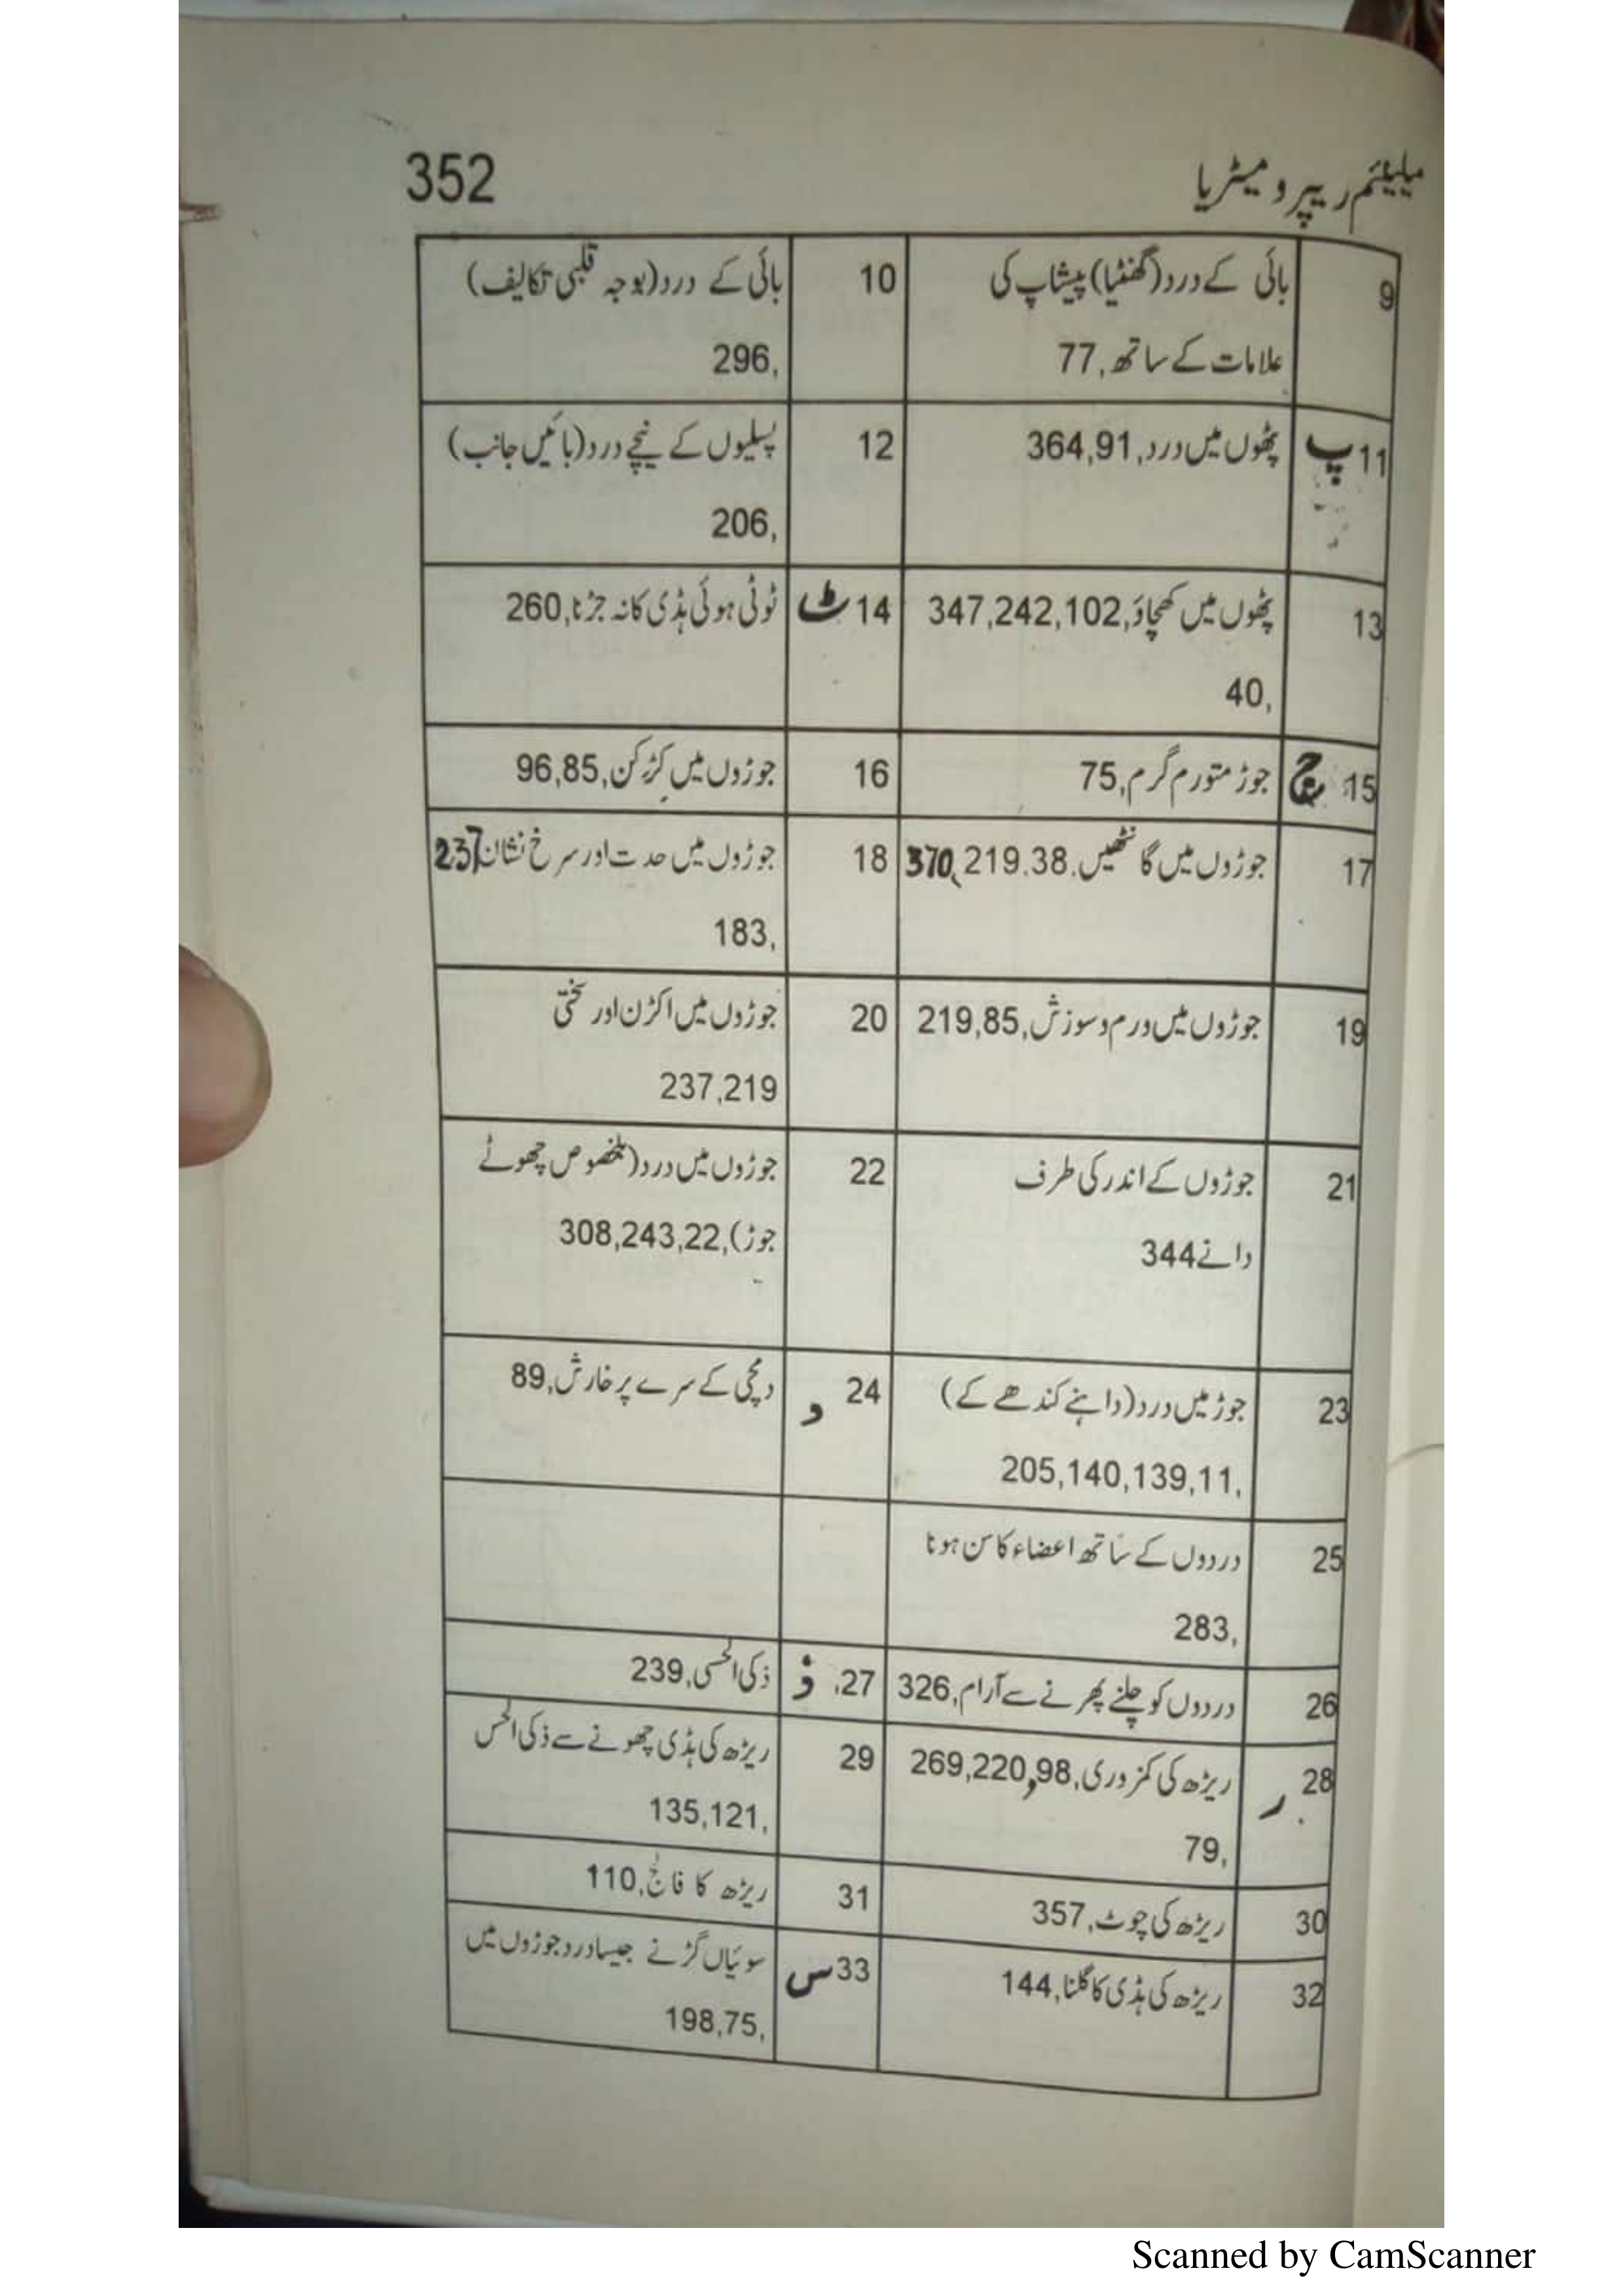 میلینیم ریپرومیٹریا 352
9 بائی کے درد (گھنٹیا) پیشاپ کی
علامات کے ساتھ,77
10 بائی کے درد (بوجہ قلبی تکالیف)
296,
11 پ پٹھوں میں درد,364,91
12 پسلیوں کے نیچے درد (بائیں جانب)
206,
13 پٹھوں میں کھچاؤ,347,242,102
40,
14 ٹ ٹوٹی ہوئی ہڈی کا نہ جڑنا,260
15 ج جوڑ متورم گرم,75
16 جوڑوں میں کڑکن,96,85
17 جوڑوں میں گانٹھیں,370,219.38
18 جوڑوں میں حدت اور سرخ نشان 237
183,
19 جوڑوں میں ورم و سوزش,219,85
20 جوڑوں میں اکڑن اور سختی
237,219
21 جوڑوں کے اندر کی طرف
دانے 344
22 جوڑوں میں درد (بلخصوص چھوٹے
جوڑ),308,243,22
23 جوڑ میں درد (داہنے کندھے کے)
205,140,139,11,
24 د دمچی کے سرے پر خارش,89
25 دردوں کے ساتھ اعضاء کا سن ہونا
283,
26 دردوں کو چلنے پھرنے سے آرام,326
27 ذ ذکی الحسی,239
28 ر ریڑھ کی کمزوری,269,220,98
79,
29 ریڑھ کی ہڈی چھونے سے ذکی الحس
135,121,
30 ریڑھ کی چوٹ,357
31 ریڑھ کا فالج,110
32 ریڑھ کی ہڈی کا گلنا,144
33 س سوئیاں گڑنے جیسا درد جوڑوں میں
198,75,
Scanned by CamScanner